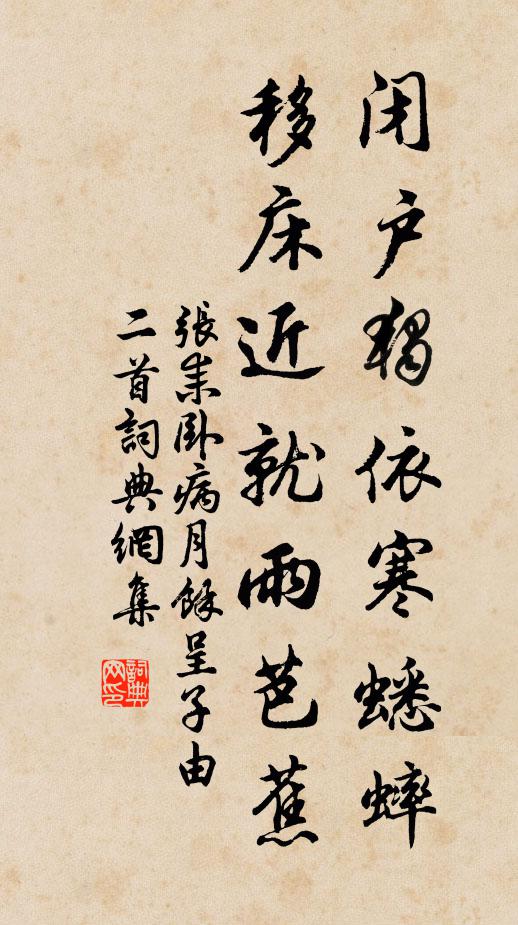 闭户独依寒蟋蟀
移床近就雨芭蕉
張耒卧病月餘呈子由
二首詞典網集
詞典网印